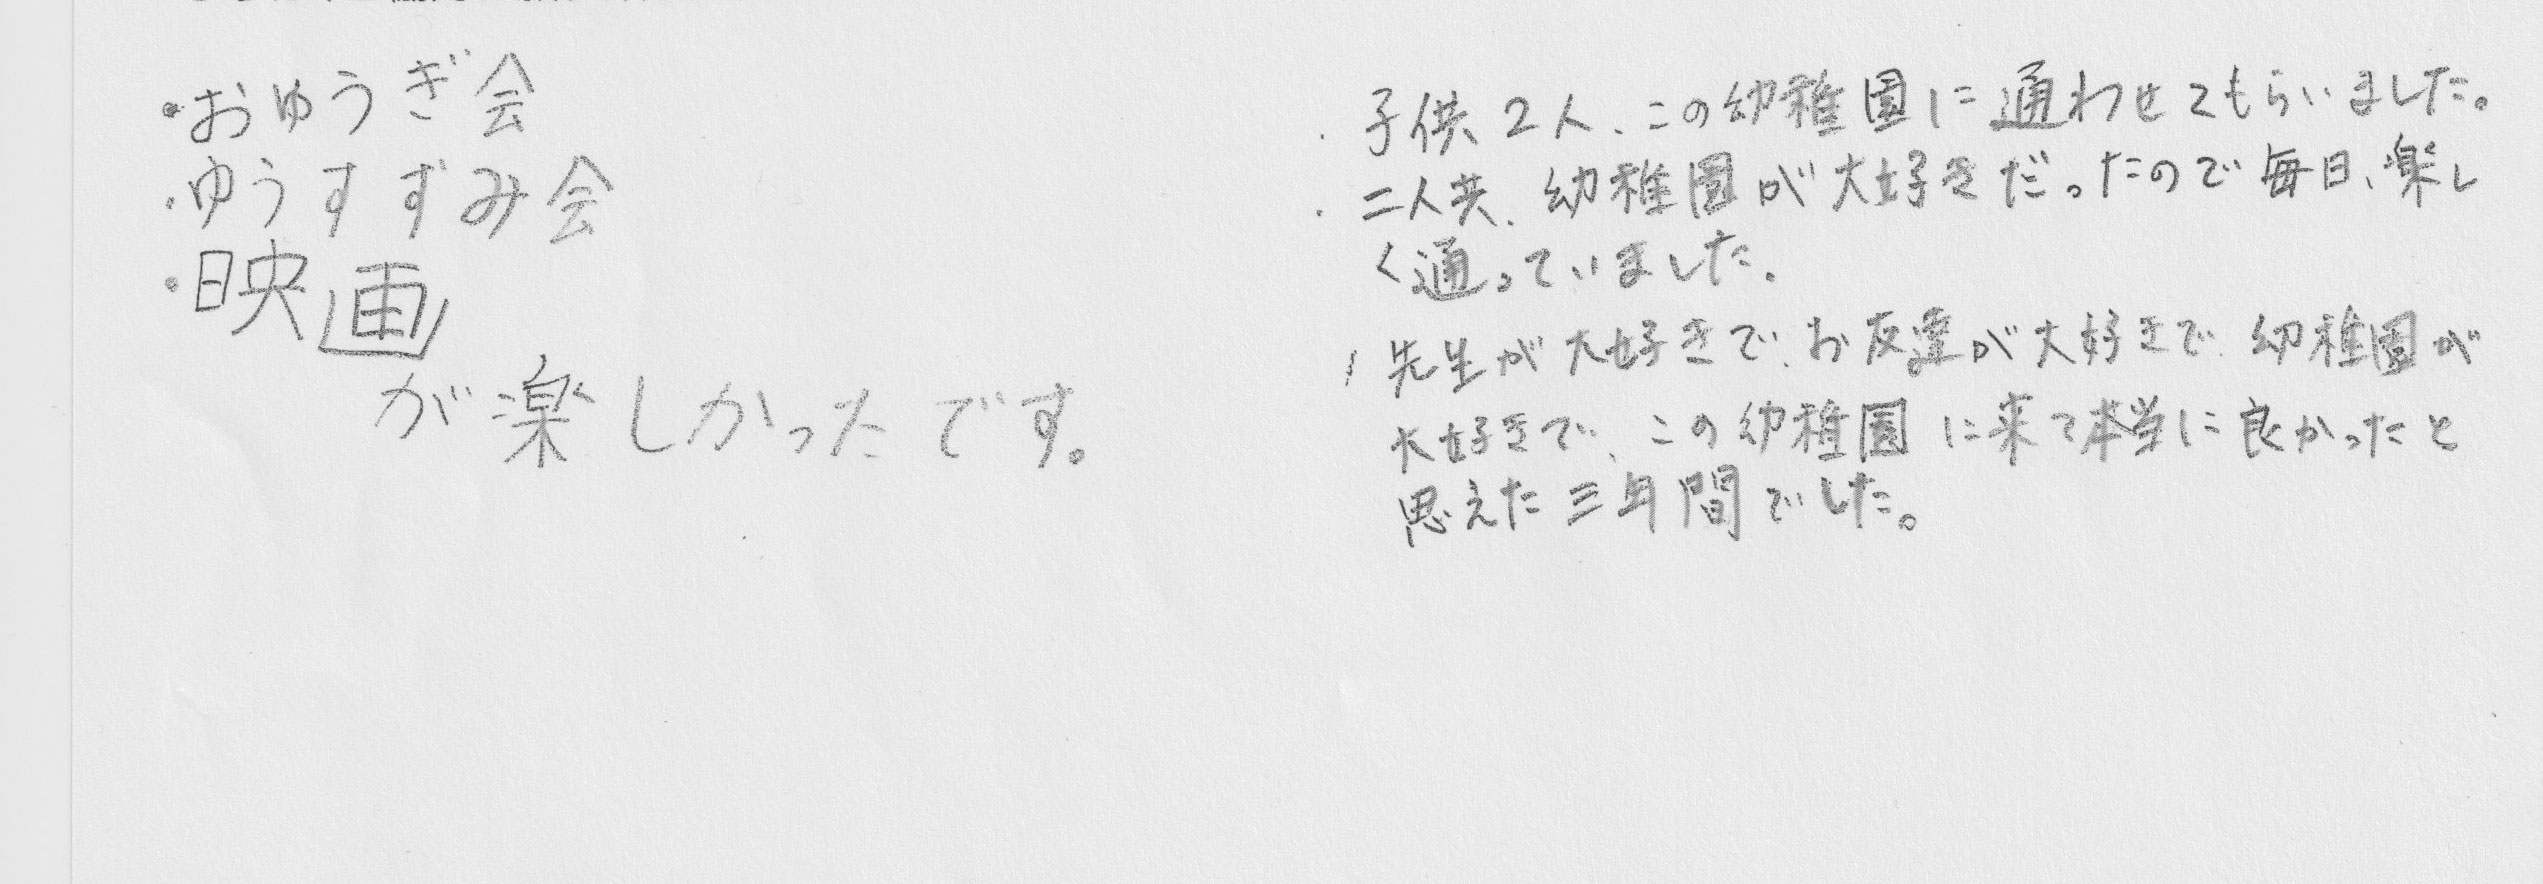 ・おゆうぎ会
・ゆうすずみ会
・映画
が楽しかったです。
・子供2人、この幼稚園に通わせてもらいました。
・二人共、幼稚園が大好きだったので毎日、楽し
く通っていました。
・先生が大好きで、お友達が大好きで、幼稚園が
大好きで、この幼稚園に来て本当に良かったと
思えた三年間でした。